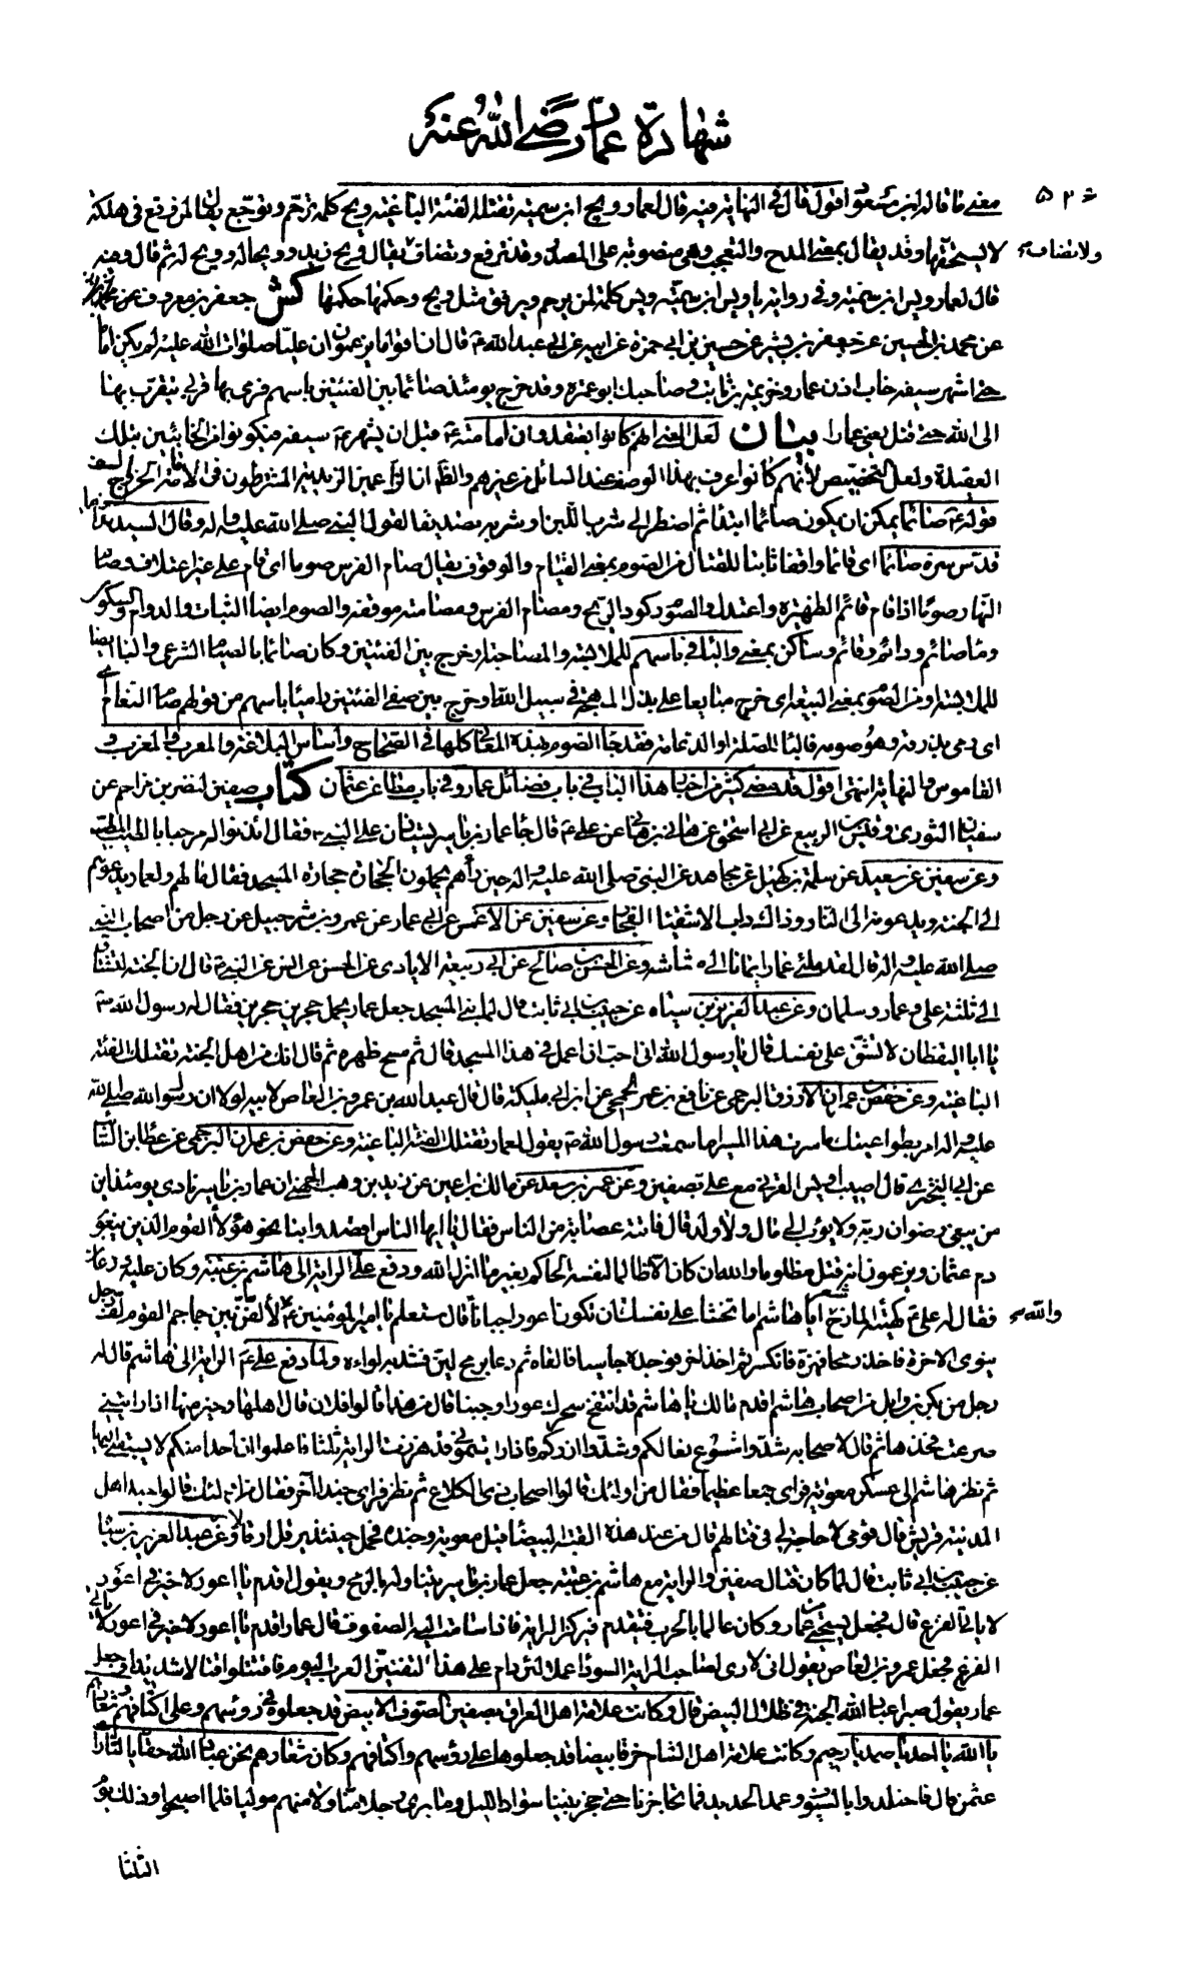 شهادة عمار رضي الله عنه
معنى ما قاله ابن مسعود اقول قال في النهاية فيه قال لعمار ويح ابن سمية تقتله الفئة الباغية ويح كلمة ترحم وتوجع يقال لمن وقع في هلكة
لا يستحقها وقد يقال بمعنى المدح والتعجب وهي منصوبة على المصدر وقد ترفع وتضاف يقال ويح زيد وويحا له وويح له ثم قال وفيه
ولا تضاف
قال لعمار ويس ابن سمية وفي رواية يا ويس ابن سمية ويس كلمة لمن يرحم ويرفق مثل ويح وحكمها حكمها كش جعفر بن معروف عن
عن محمد بن الحسين عن جعفر بن بشير عن حسين بن ابي حمزة عن ابيه عن ابي عبد الله ع قال ان قوما يزعمون ان عليا صلوات الله عليه لم يكن اماما
حتى اشهر سيفه خاب اذن عمار وخزيمة بن ثابت وصاحبك ابو عمرة وقد خرج يومئذ صائما بين الفئتين باسهم فرمى بها قربى يتقرب بها
الى الله حتى قتل يعني عمارا بيان لعل المعنى انهم كانوا يعتقدون ان امامته ع قبل ان يشهر ع سيفه فيكونوا من الخائبين بتلك
العقيدة ولعل التخصيص لانهم كانوا اعرف بهذا الوصف عند السائل من غيرهم والظاهر ان الزاعمين الزيدية المشترطون في الامامة الخروج بالسيف
قوله ع صائما يمكن ان يكون صائما ابتداء ثم اضطر الى شرب اللبن او شربه تصديقا لقول النبي صلى الله عليه وآله وقال السيد
قدس سره صائما اي قائما واقفا ثابتا للقتال من الصوم بمعنى القيام والوقوف يقال صام الفرس صوما اي قام على غير اعتلاف وصام
النهار صوما اذا قام قائم الظهيرة واعتدل والصوم ركود الريح ومصام الفرس ومصامته موقفه والصوم ايضا الثبات والدوام والسكون
وماء صائم ودائم وقائم وساكن بمعنى والباء في باسهم للملابسة والمصاحبة او خرج بين الفئتين وكان صائما بالصيام الشرعي والباء ايضا
للملابسة او من الصوم بمعنى البيعة اي خرج مبايعا على بذل المهجة في سبيل الله او خرج بين صفي الفئتين راميا باسهم من قولهم صام النعام
اي رمى بذرقه وهو صومه فالباء للصلة او الدعامة فقد جاء الصوم بهذه المعاني كلها في الصحاح واساس البلاغة والمعرب والمغرب و
القاموس والنهاية انتهى اقول قد مضى كثير من اخبار هذا الباب في باب فضائل عمار وفي باب مطاعن عثمان كتاب صفين لنصر بن مزاحم عن
سفيان الثوري وقيس بن الربيع عن ابي اسحق عن هاني بن هاني عن علي ع قال جاء عمار بن ياسر يستاذن على النبي ص فقال ائذنوا له مرحبا بالطيب المطيب
وعن سفين عن سلمة بن كهيل عن مجاهد عن النبي صلى الله عليه وآله حين رآهم يحملون الحجارة حجارة المسجد فقال ما لهم ولعمار يدعوهم
الى الجنة ويدعونه الى النار وذلك داب الاشقياء الفجار وعن سفين عن الاعمش عن ابي عمار عن عمرو بن شرحبيل عن رجل من اصحاب النبي
صلى الله عليه وآله قال لقد ملئ عمار ايمانا الى مشاشه وعن الحسن بن صالح عن ابي ربيعة الايادي عن الحسن عن انس عن النبي ص قال ان الجنة لتشتاق
الى ثلثة علي وعمار وسلمان وعن عبد العزيز بن سياه عن حبيب بن ابي ثابت قال لما بني المسجد جعل عمار يحمل حجرين حجرين فقال له رسول الله ص
يا ابا اليقظان لا تشق على نفسك قال يا رسول الله اني احب ان اعمل في هذا المسجد قال ثم مسح ظهره ثم قال انك من اهل الجنة تقتلك الفئة
الباغية وعن حفص بن عمران الازرق البرجمي عن نافع بن عمر الجمحي عن ابن ابي مليكة قال قال عبد الله بن عمرو بن العاص لابيه لولا ان رسول الله صلى الله
عليه وآله امر بطواعيتك ما سرت هذا المسير اما سمعت رسول الله ص يقول لعمار تقتلك الفئة الباغية وعن حفص بن عمران البرجمي عن عطا بن السائب
عن ابي البختري قال اصيب اويس القرني مع علي بصفين وعن عمر بن سعد عن مالك بن اعين عن زيد بن وهب الجهني ان عمار بن ياسر نادى يومئذ اين
من يبغي رضوان ربه ولا يؤب الى مال ولا ولد قال فاتته عصابة من الناس فقال يا ايها الناس اقصدوا بنا نحو هؤلاء القوم الذين يتبعون
دم عثمان ويزعمون انه قتل مظلوما والله ان كان الا ظالما لنفسه الحاكم بغير ما انزل الله ودفع علي الراية الى هاشم بن عتبة وكان عليه درعان
فقال له علي ع كهيئة المازح ايا هاشم اما تخشى على نفسك ان تكون اعور جبانا قال ستعلم يا امير المؤمنين لالفن بين جماجم القوم لف رجل
والله
ينوي الاخرة فاخذ رمحا فهزه فانكسر ثم اخذ اخر فوجده جاسيا فالقاه ثم دعا برمح لين فشد به لواءه ولما دفع علي ع الراية الى هاشم قال له
رجل من بكر بن وايل من اصحاب هاشم اقدم مالك يا هاشم قد انتفخ سحرك عورا وجبنا قال من هذا قالوا فلان قال اهلها وخير منها اذا رايتني
صرعت فخذها ثم قال لاصحابه شدوا شسوع نعالكم وشدوا ازركم فاذا رايتموني قد هززت الراية ثلثا فاعلموا ان احدا منكم لا يسبقني اليها
ثم نظر هاشم الى عسكر معوية فراى جمعا عظيما فقال من اولئك قالوا اصحاب ذي الكلاع ثم نظر فراى جندا آخر فقال من اولئك قالوا جند اهل
المدينة قريش قال قومي لا حاجة لي في قتالهم قال من عند هذه القبة البيضاء قيل معوية وجنده فحمل حينئذ يرقل ارقالا وعن عبد العزيز بن سياه
عن حبيب بن ابي ثابت قال لما كان قتال صفين والراية مع هاشم بن عتبة جعل عمار بن ياسر يتناوله بالرمح ويقول اقدم يا اعور لا خير في اعور
لا ياتي الفزع قال فجعل يستحيي من عمار وكان عالما بالحرب فيتقدم فيركز الراية فاذا تنامت اليه الصفوف قال عمار اقدم يا اعور لا خير في اعور لا ياتي
الفزع فجعل عمرو بن العاص يقول اني لارى لصاحب الراية السوداء عملا لئن دام على هذا لتفنين العرب اليوم فاقتتلوا قتالا شديدا وجعل
عمار يقول صبرا عباد الله الجنة في ظلال البيض قال وكانت علامة اهل العراق بصفين الصوف الابيض قد جعلوه في رؤسهم وعلى اكتافهم وشعارهم
يا الله يا احد يا صمد يا رحيم وكانت علامة اهل الشام خرقا بيضا قد جعلوها على رؤسهم واكتافهم وكان شعارهم نحن عباد الله حقا يا لثارات
عثمن قال فاجتلدوا بالسيوف وعمد الحديد فما تحاجزنا حتى حجز بيننا سواد الليل وما يرى رجل منا ولا منهم موليا فلما اصبحوا وذلك يوم
الثلثا